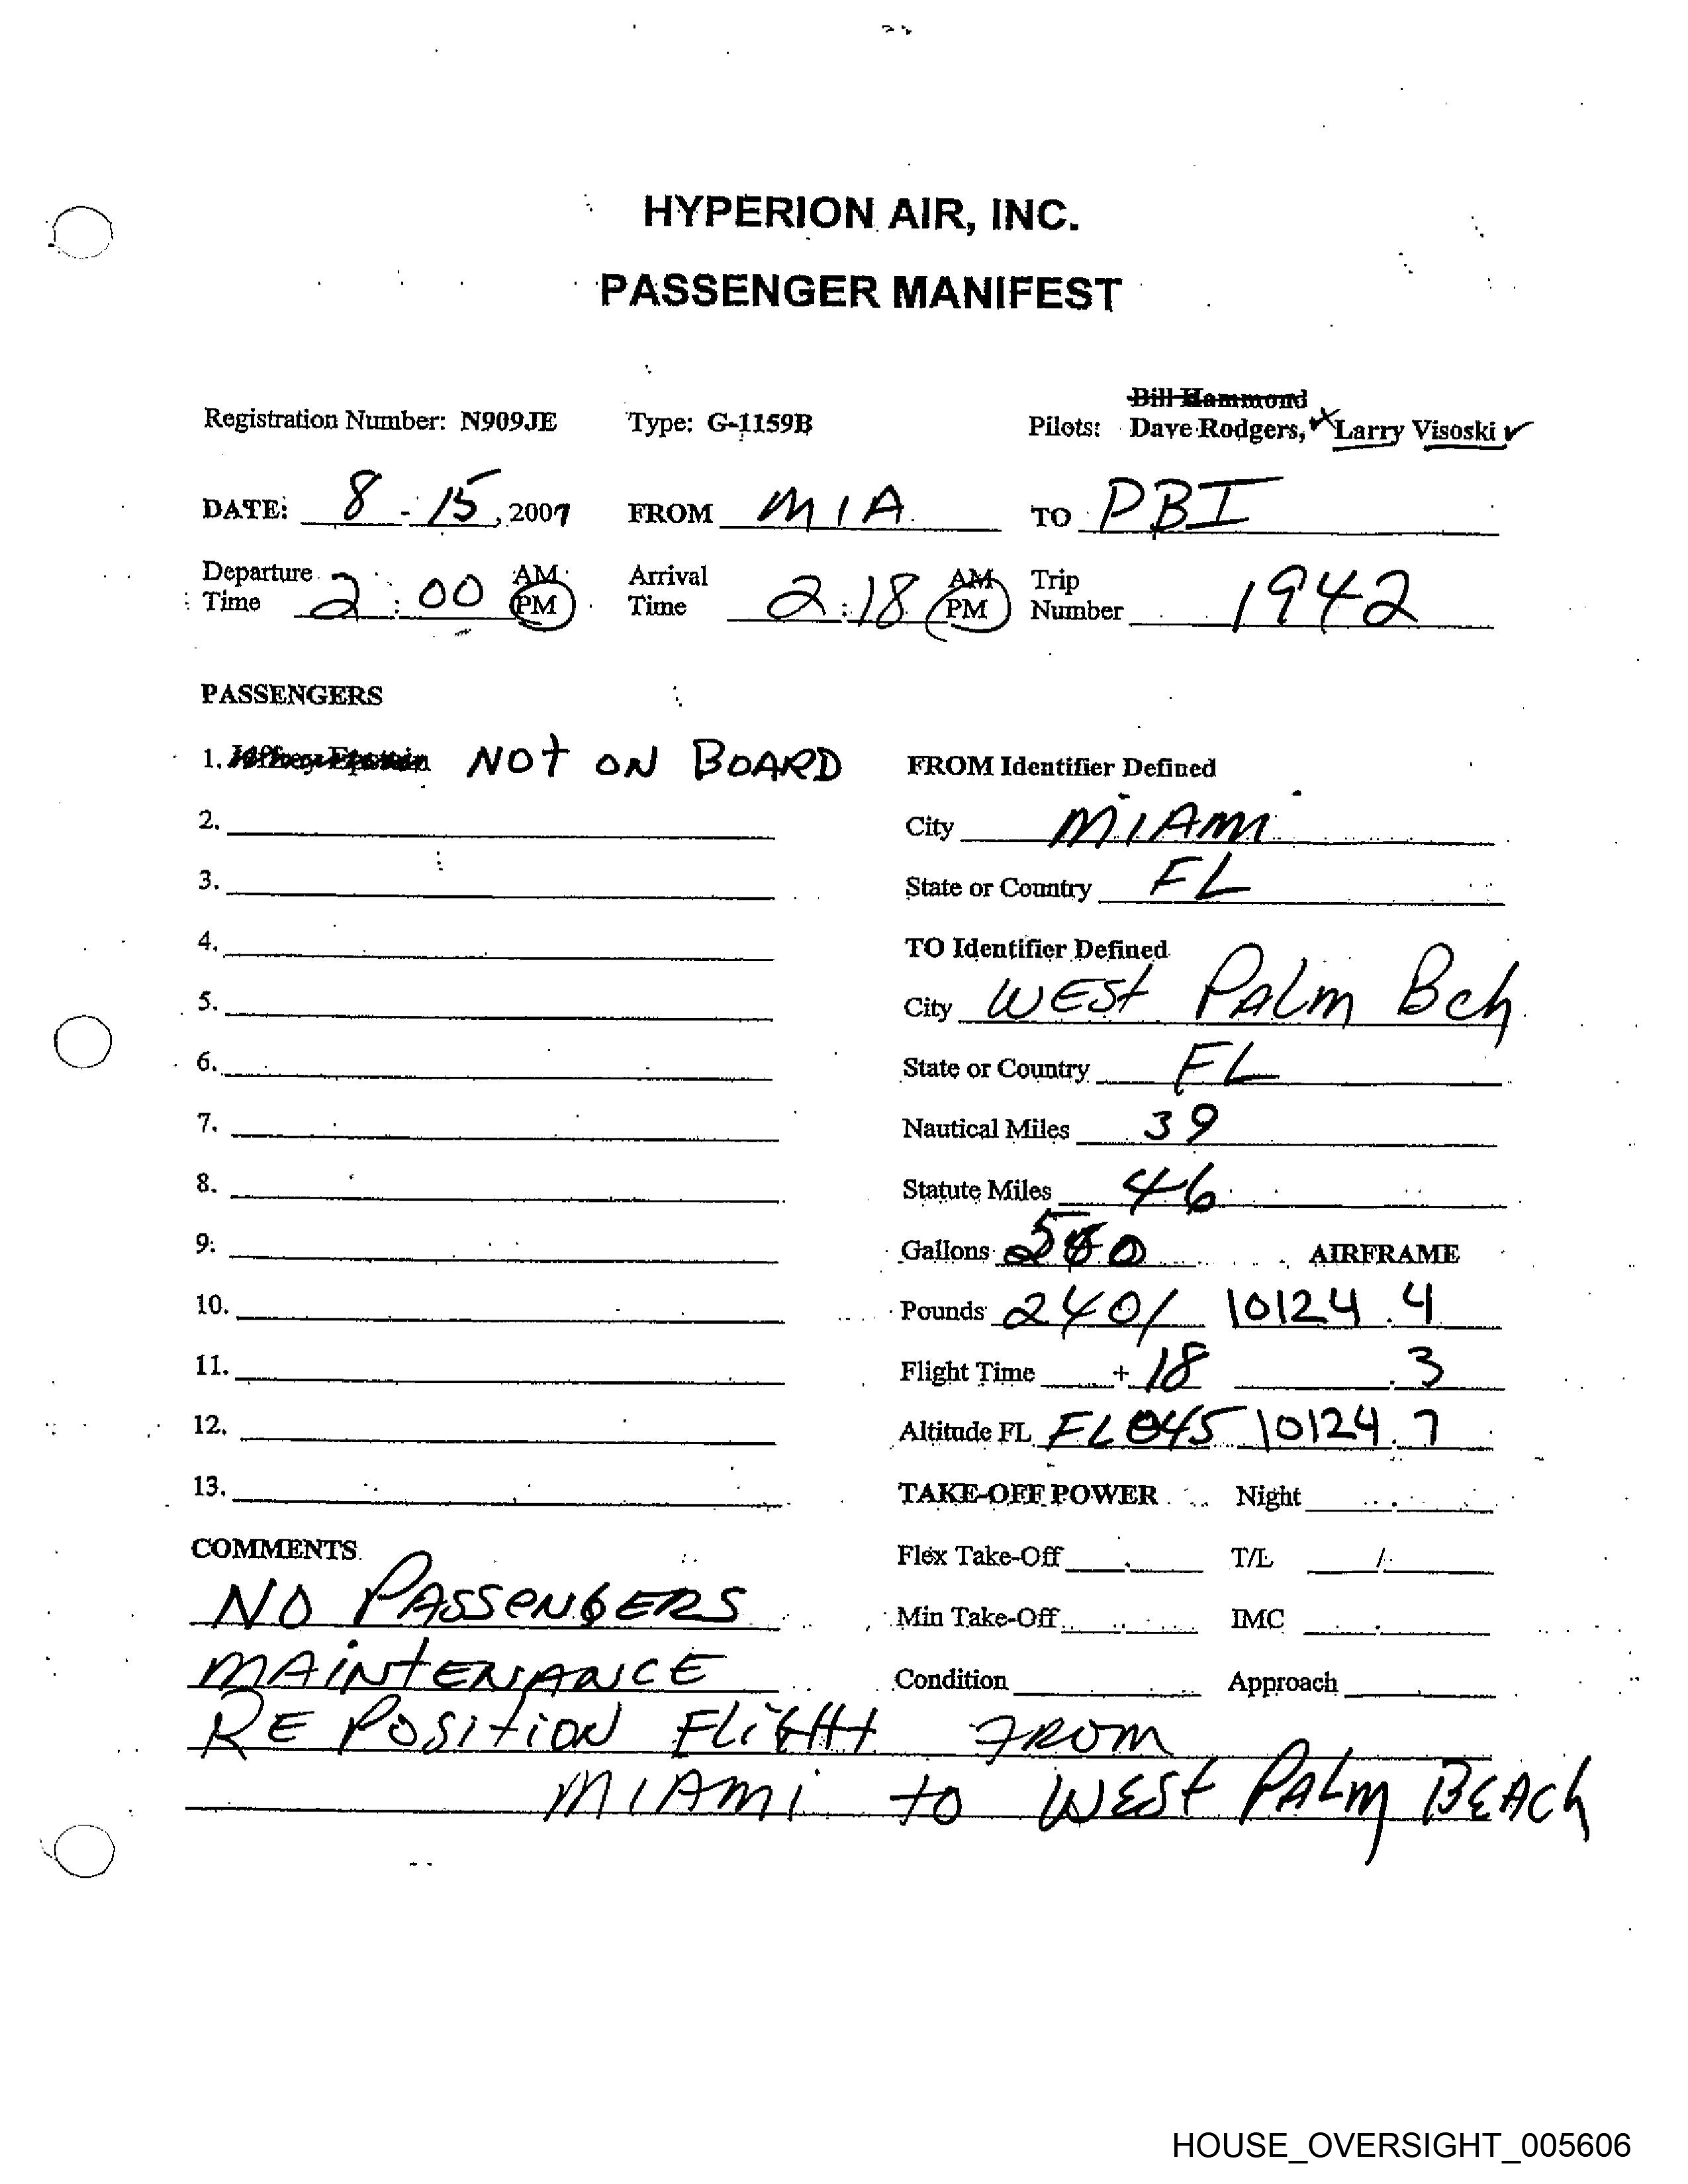 HYPERION AIR, INC.
PASSENGER MANIFEST
Bill Hammond
Registration Number: N909JE Type: G-1159B Pilots: Dave Rodgers, Larry Visoski
DATE: 8 - 15, 2007 FROM MIA TO PBI
Departure Time 2:00 AM PM Arrival Time 2:18 AM PM Trip Number 1942
PASSENGERS
1. Jeffrey Epstein NOT ON BOARD FROM Identifier Defined
2. City MIAMI
3. State or Country FL
4. TO Identifier Defined
5. City WEST PALM Bch
6. State or Country FL
7. Nautical Miles 39
8. Statute Miles 46
9. Gallons AIRFRAME
10. Pounds 2401 10124.4
11. Flight Time + 18 .3
12. Altitude FL FL045 10124.7
13. TAKE-OFF POWER Night
COMMENTS Flex Take-Off T/L /
NO PASSENGERS Min Take-Off IMC
MAINTENANCE Condition Approach
RE POSITION FLIGHT FROM
MIAMI to WEST PALM BEACH
HOUSE_OVERSIGHT_005606